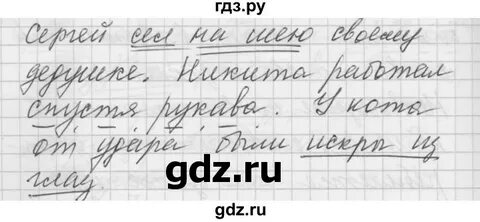 гдз.ру
Сергей сел на шею своему
дедушке. Никита работал
спустя рукава. У кота
от удара были искры из
глаз.
gdz.ru
gdz.ru